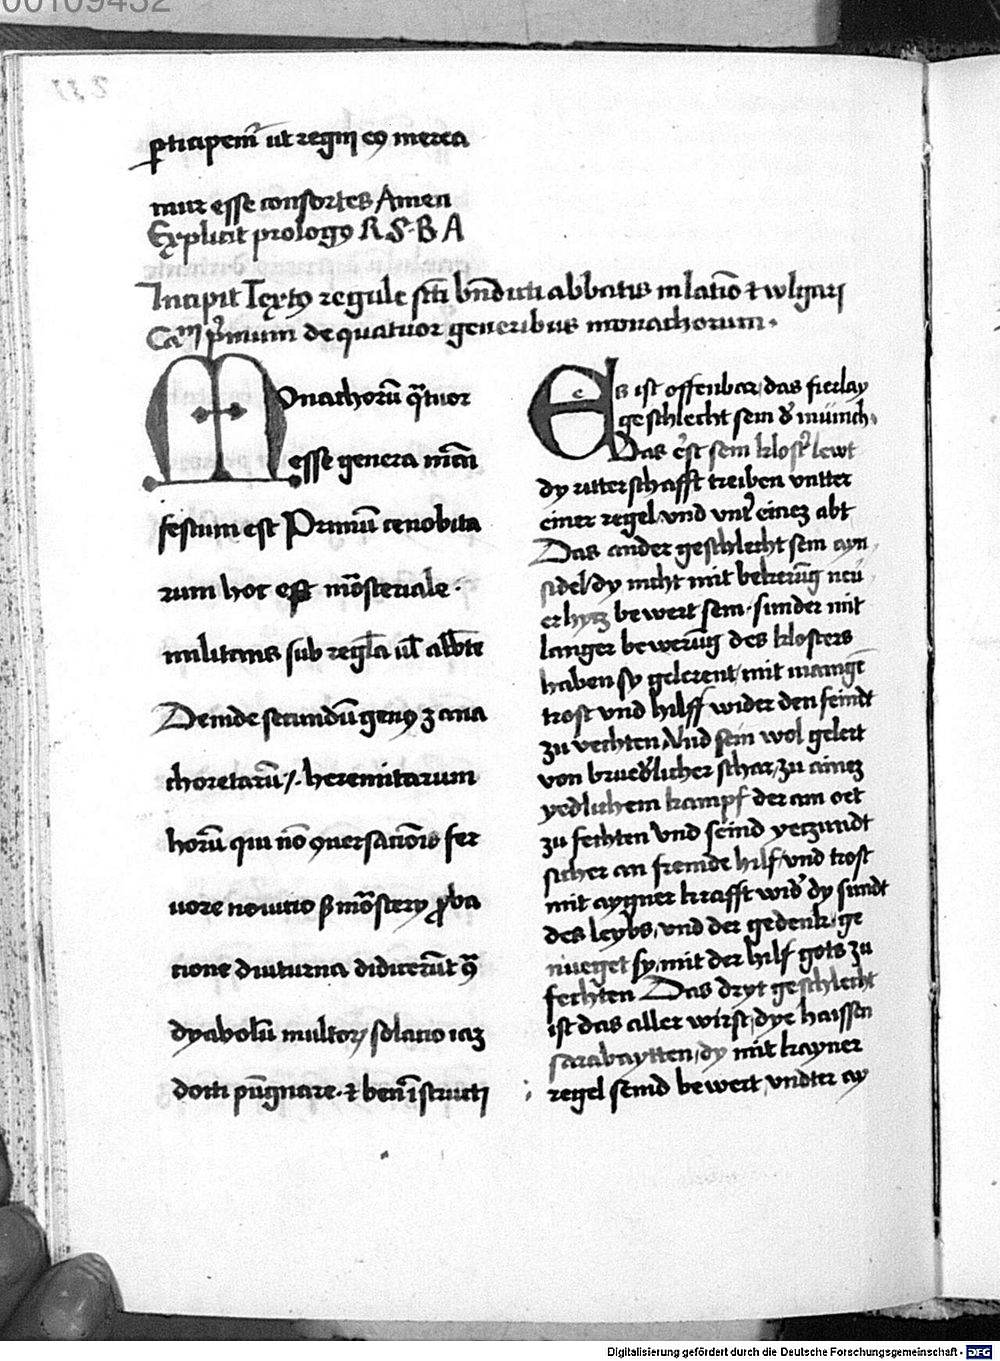 00109452
ꝑticipem᷑ ut regni eꝯ merea
mur esse consortes Amen
Explicit prologꝯ R S B A
Incipit Textꝯ regule scti bn̄dicti abbatis in latīo ⁊ wlgari
Caᵐ pͥmum de quatuor generibus monachorum.
Monachorū qͣtuor
esse genera māī
festum est Primū cenobita
rum hoc est mōsteriale.
militans sub regl̄a ul̄ abb̄te
Deinde secundū genꝯ ⁊ ana
choretarū /. heremitarum
horū qui nō ꝯuersacīōis fer
uore nouicio sꝫ mōstery ꝓba
cione diuturna didicer̄ūt qͣ
dyabolū multoꝝ solacio iaꝫ
docti pūgnare. ⁊ ben̄ īstructi
Es ist offenbar, das fierlay
geschlecht sein dʾ münich.
Das eʾst sein klostʾlewt
dy ritterschafft treiben vntter
einer regel vnd vntʾ einez abt
Das ander geschlecht sein ayn
sidel / dy nicht mit bekerūg neü
er hytz bewert sein. sunder mit
langer bewerūg des klosters
haben sy gelerent, mit manigē
trost vnd hilff wider den feindt
zu vechten Vnd sein wol gelert
von bruedʾlicher schar, zu ainez
yedlichem kampf der am ort
zu fechten Vnd seind yetzundt
sicher an fremde hilf, vnd trost
mit aygner krafft widʾ dy sundt
des leybs, vnd der gedenk, ge
nüeget sy, mit der hilf gots zu
fechten Das dryt geschlecht
ist das aller wirst, dye haissen
sarabaytten, dy mit kayner
regel seind bewert, vndter ay
Digitalisierung gefördert durch die Deutsche Forschungsgemeinschaft - DFG